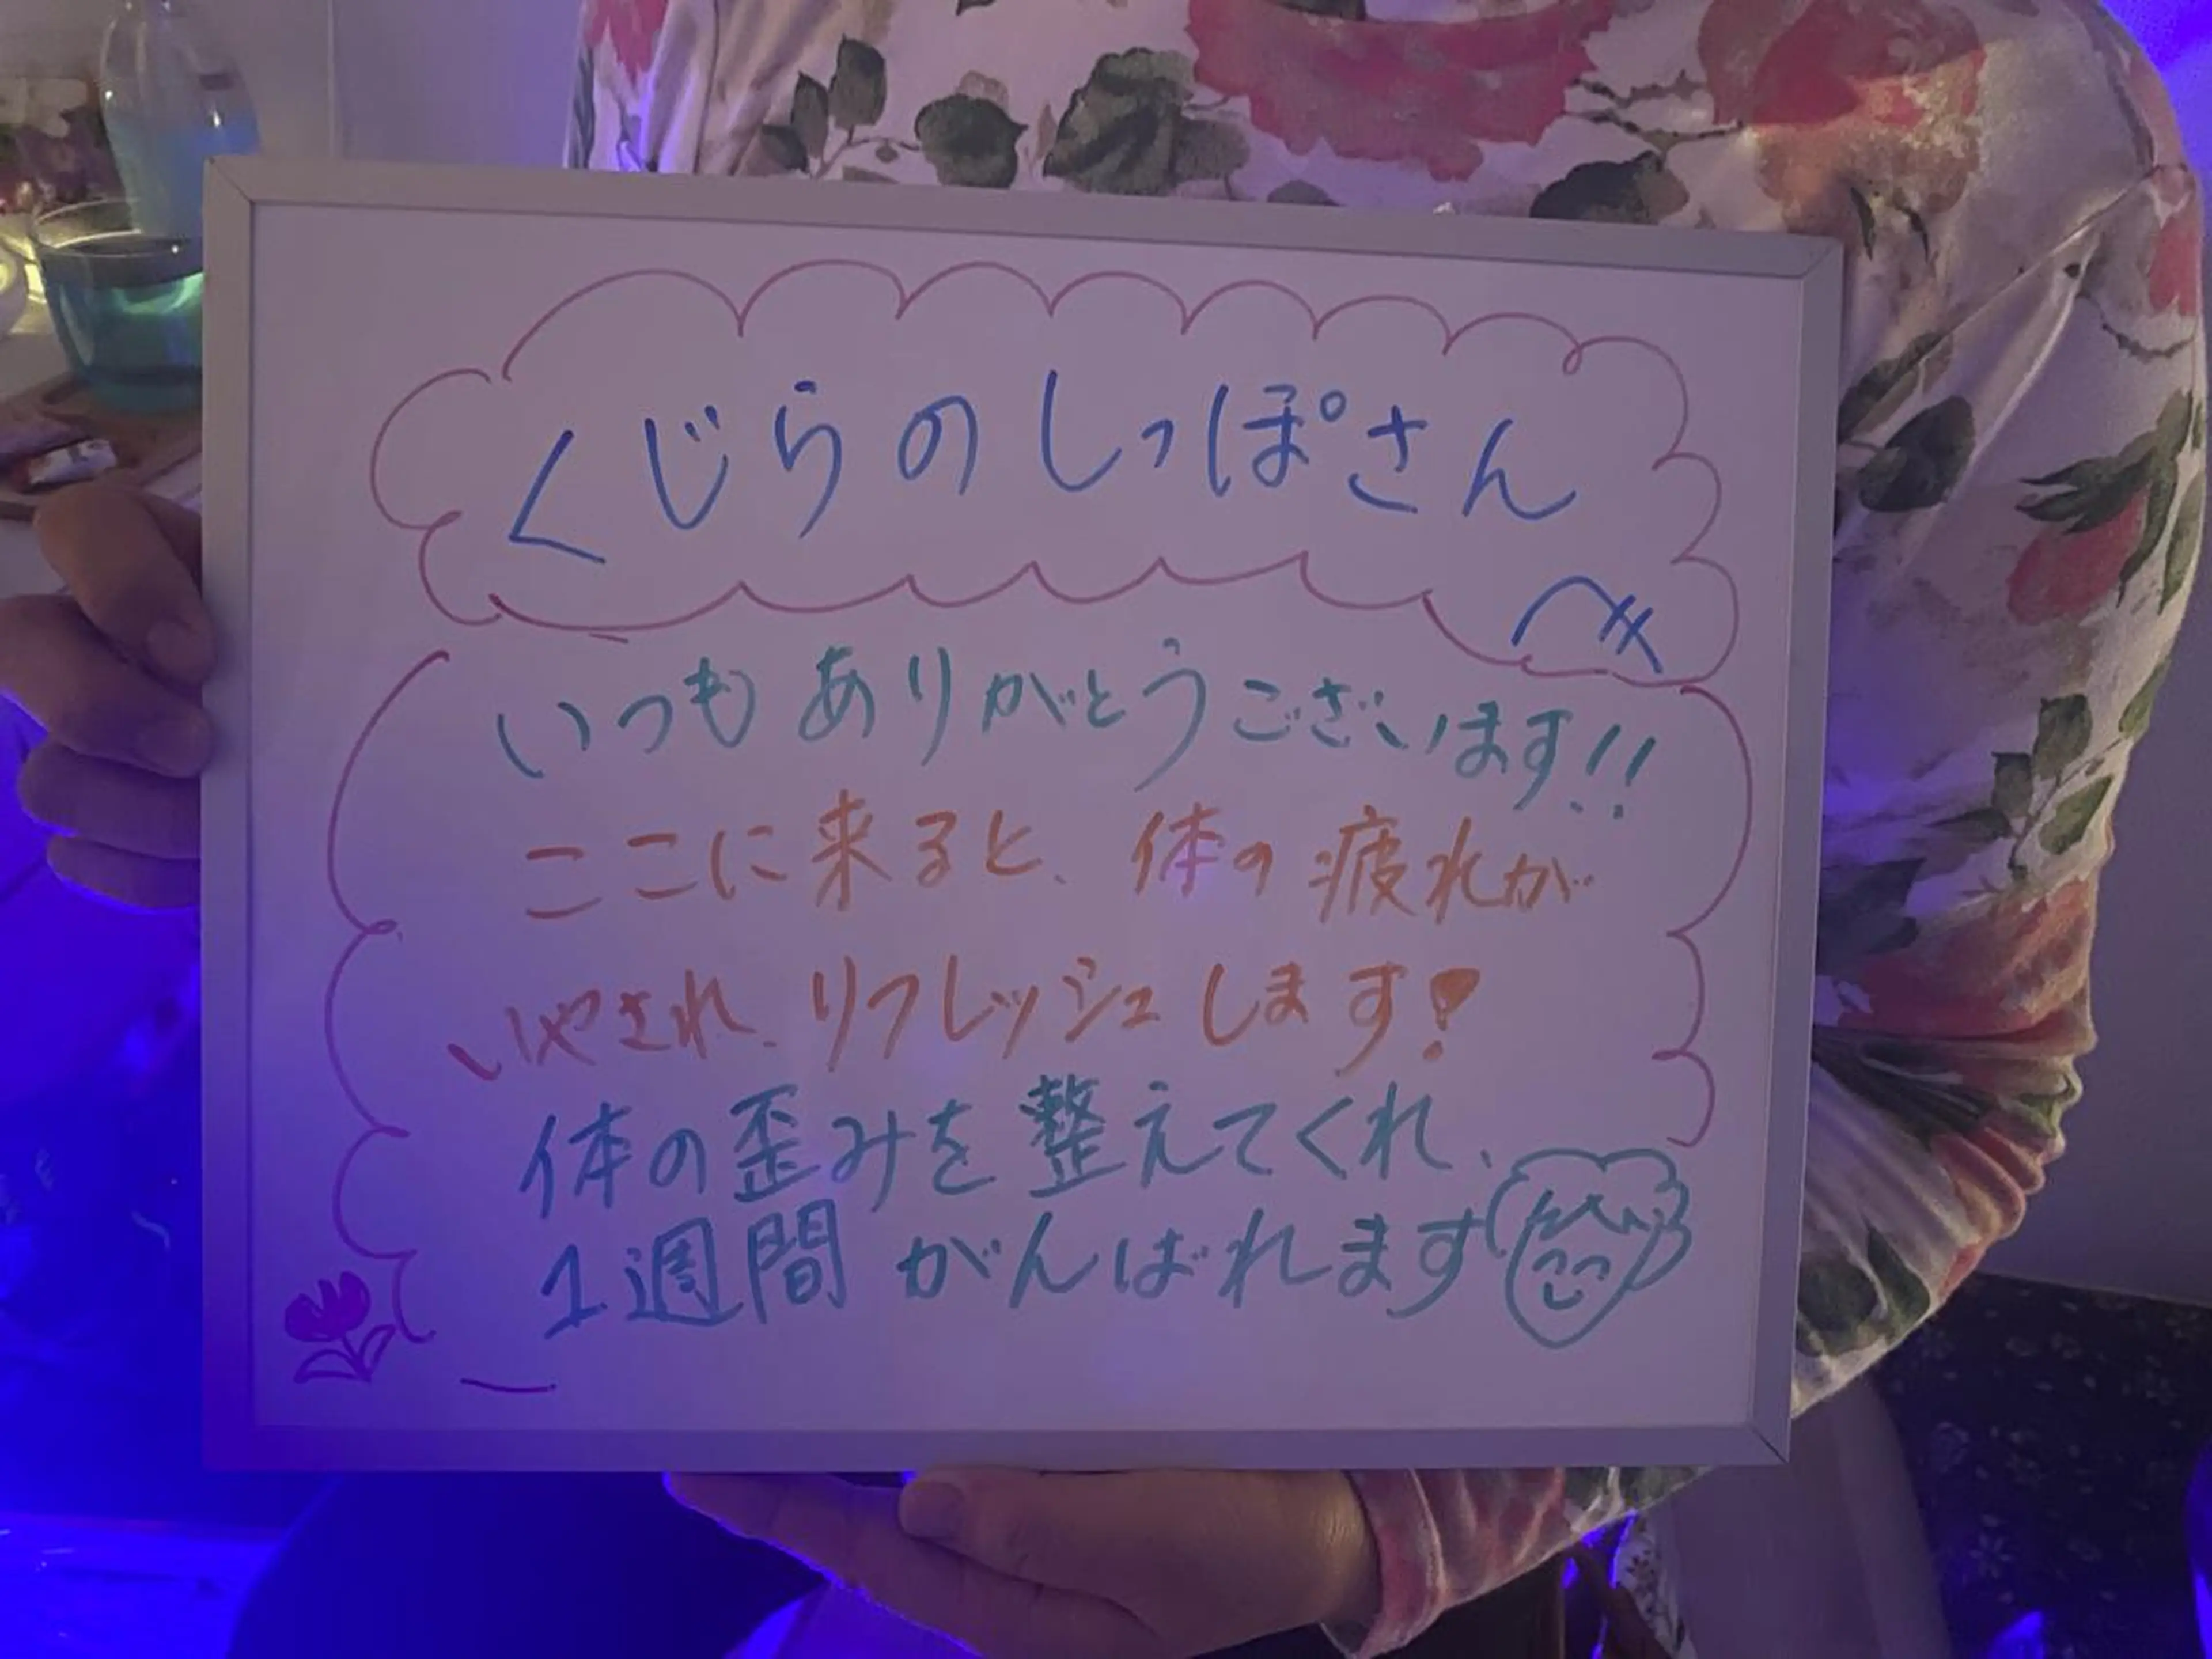 くじらのしっぽさん
いつもありがとうございます!!
ここに来ると、体の疲れが
いやされ、リフレッシュします!
体の歪みを整えてくれ、
1週間がんばれます